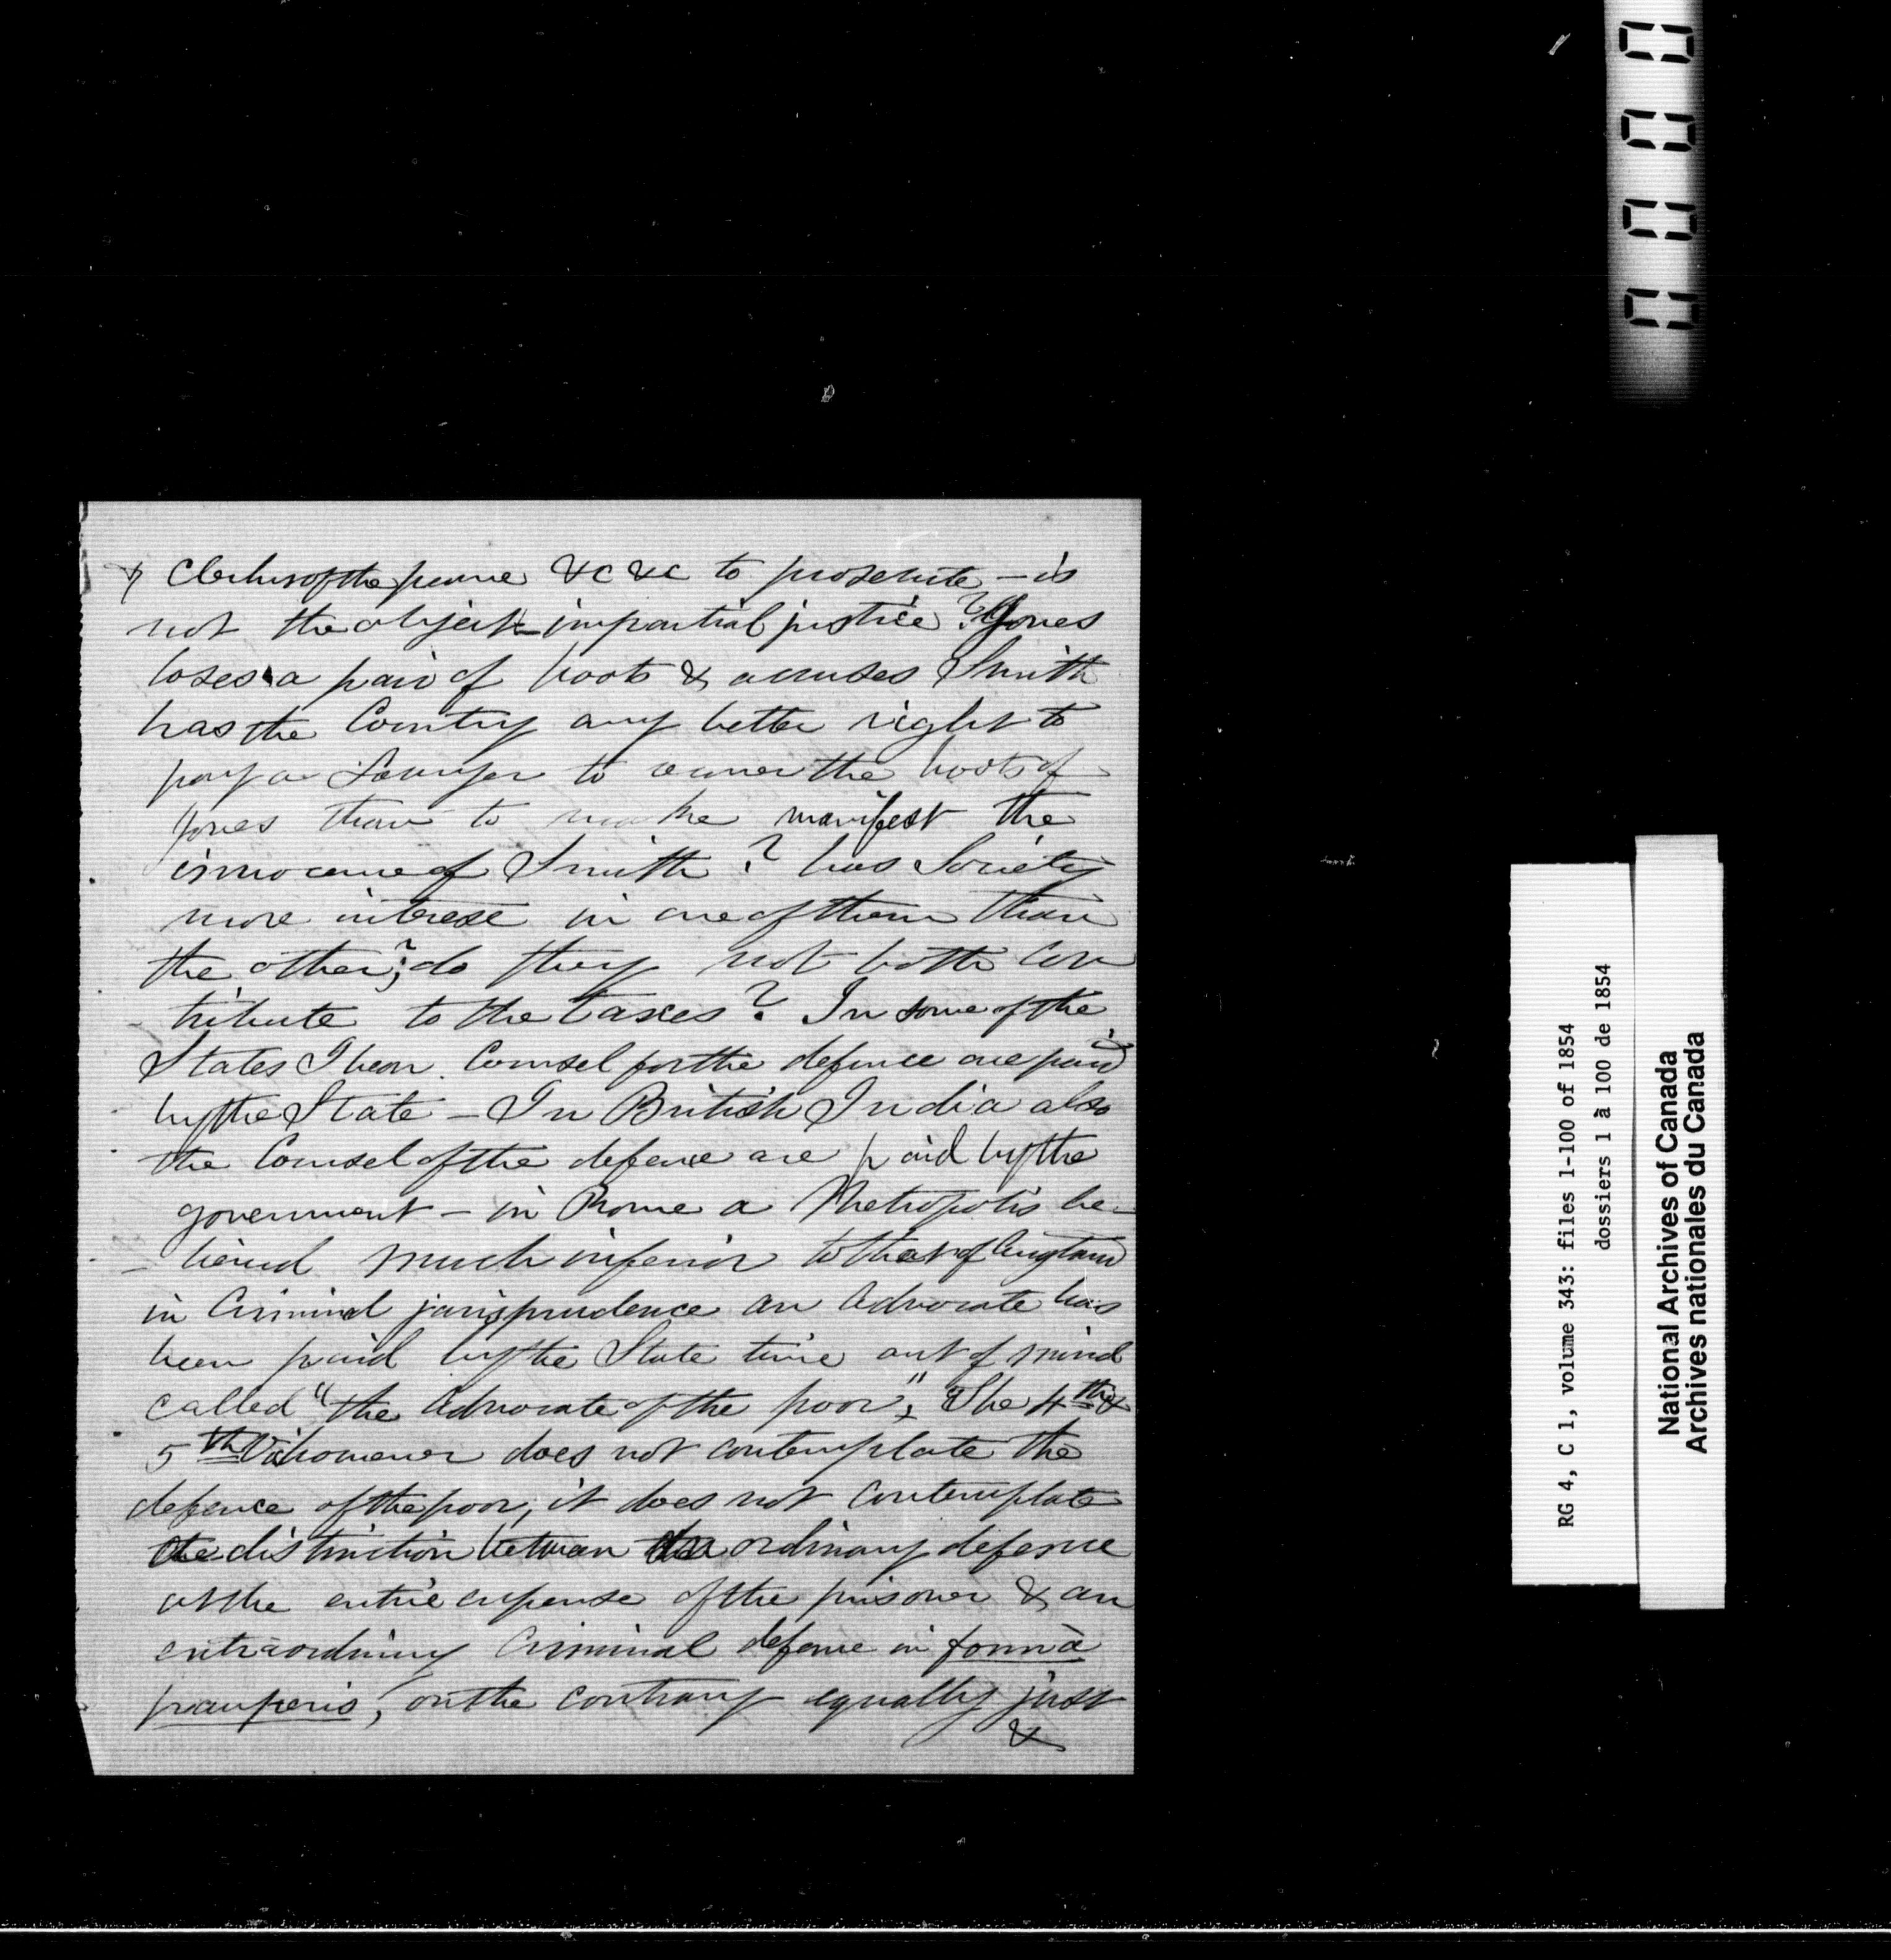 & Clerks of the peace &c &c to prosecute – is
not the object – impartial justice? Jones
loses a pair of boots & accuses Smith
has the Country any better right to
pay a Lawyer to recover the boots of
Jones than to make manifest the
innocence of Smith? has Society
more interest in one of them than
the other?; do they not both con
tribute to the taxes? In some of the
States I hear. Counsel for the defence are paid
by the State – In British India also
the Counsel of the defence are paid by the
government – in Rome a Metropolis be-
- lieved much inferior to that of England
in Criminal jurisprudence an Advocate has
been paid by the State time out of mind
called "the Advocate of the poor", The 4th &
5th Victoria however does not contemplate the
defence of the poor, it does not contemplate
the distinction between the ordinary defence
at the entire expense of the prisoner & an
extraordinary Criminal defence in formâ
pauperis, on the contrary equally just
&
RG 4, C 1, volume 343: files 1-100 of 1854
dossiers 1 à 100 de 1854
National Archives of Canada
Archives nationales du Canada